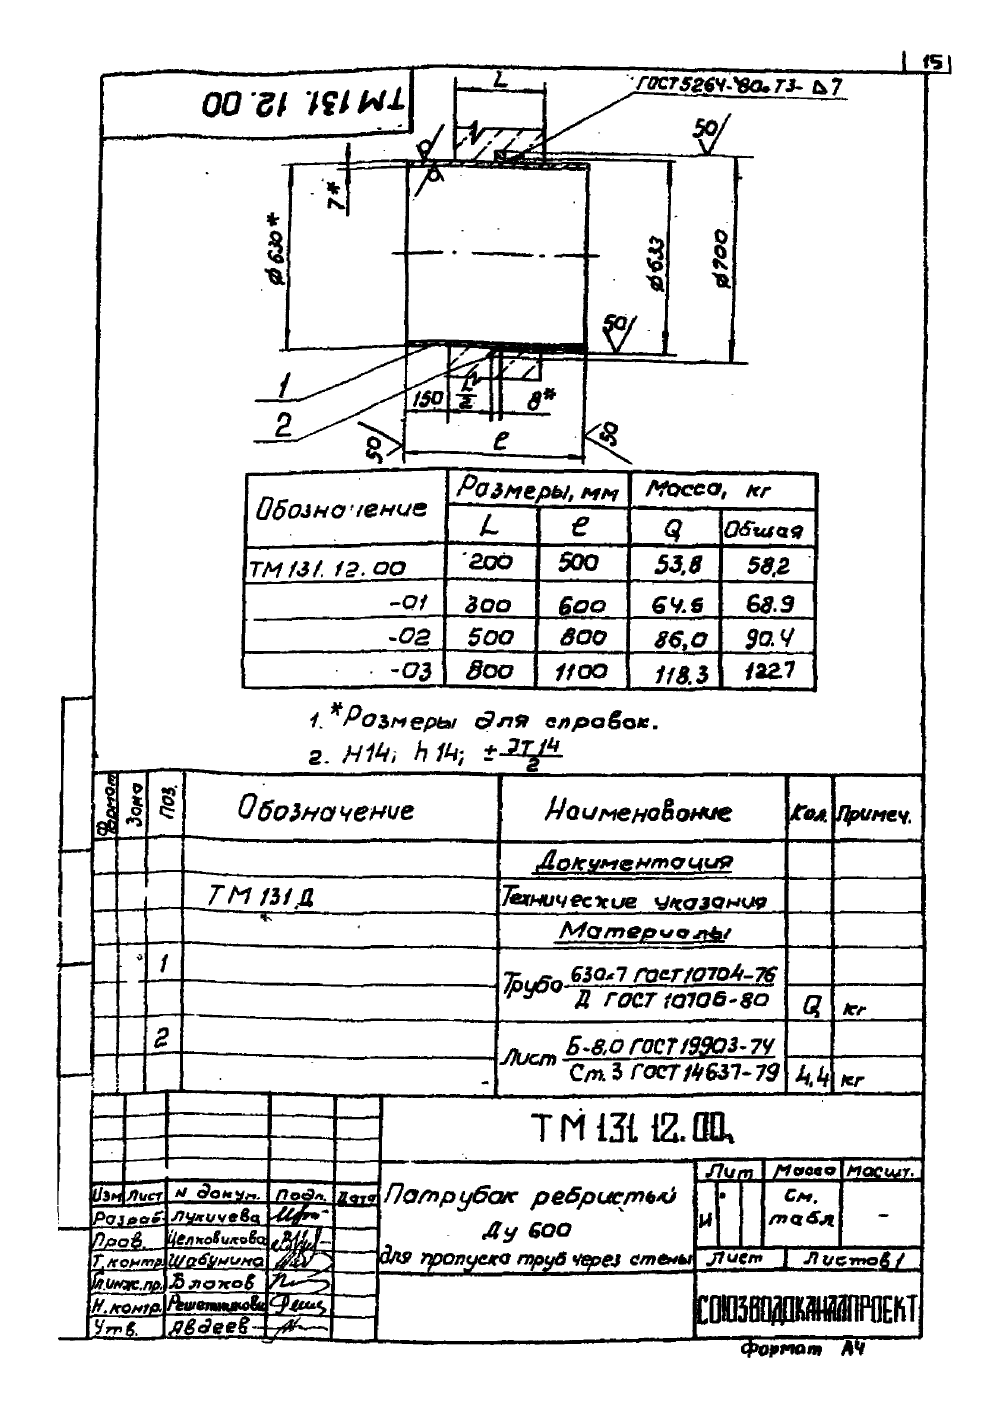 15
ТМ 131.12.00
L
ГОСТ 5264-80-Т3-⊿7
50
7*
⌀630*
⌀633
⌀700
50
1
2
150
L/2
8*
50
ℓ
50
Обозначение
Размеры, мм
Масса, кг
L
ℓ
Q
Общая
ТМ 131.12.00 200 500 53,8 58,2
-01 300 600 64.6 68.9
-02 500 800 86,0 90.4
-03 800 1100 118.3 122.7
1. *Размеры для справок.
2. H14; h14; ± JT14/2
Формат Зона Поз. Обозначение Наименование Кол. Примеч.
Документация
ТМ 131 Д Технические указания
Материалы
1 Труба 630×7 ГОСТ 10704-76
Д ГОСТ 10706-80 Q кг
2 Лист Б-8,0 ГОСТ 19903-74
Ст.3 ГОСТ 14637-79 4,4 кг
ТМ 131.12.00
Изм Лист N докум. Подп. Дата
Разраб. Лукичева
Пров. Целковикова
Т.контр. Шабунина
Гл.инж.пр. Блохов
Н.контр. Решетникова
Утв. Авдеев
Патрубок ребристый
Ду 600
для пропуска труб через стены
Лит Масса Масшт.
И См. табл –
Лист Листов 1
СОЮЗВОДОКАНАЛПРОЕКТ
Формат А4